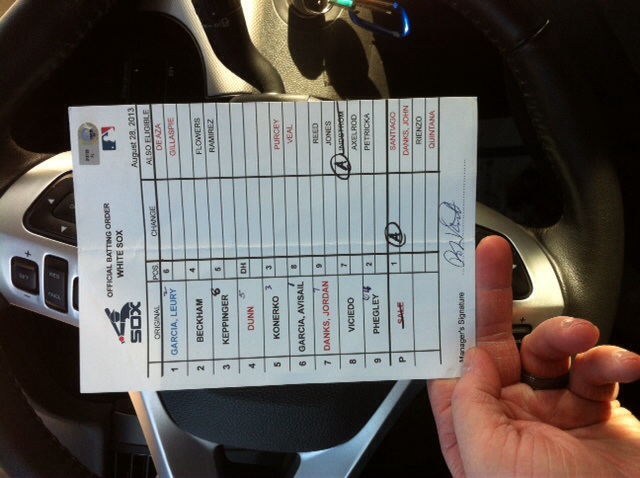 August 28, 2013
OFFICIAL BATTING ORDER
WHITE SOX
SOX
ORIGINAL POS CHANGE ALSO ELIGIBLE
DE AZA
1 GARCIA, LEURY 6 GILLASPIE
2 BECKHAM 4 FLOWERS
RAMIREZ
3 KEPPINGER 5
4 DUNN DH
5 KONERKO 3 PURCEY
VEAL
6 GARCIA, AVISAIL 8
REED
7 DANKS, JORDAN 9 JONES
LINDSTROM
8 VICIEDO 7 AXELROD
9 PHEGLEY 2 PETRICKA
P SALE 1 SANTIAGO
DANKS, JOHN
RIENZO
QUINTANA
Manager's Signature